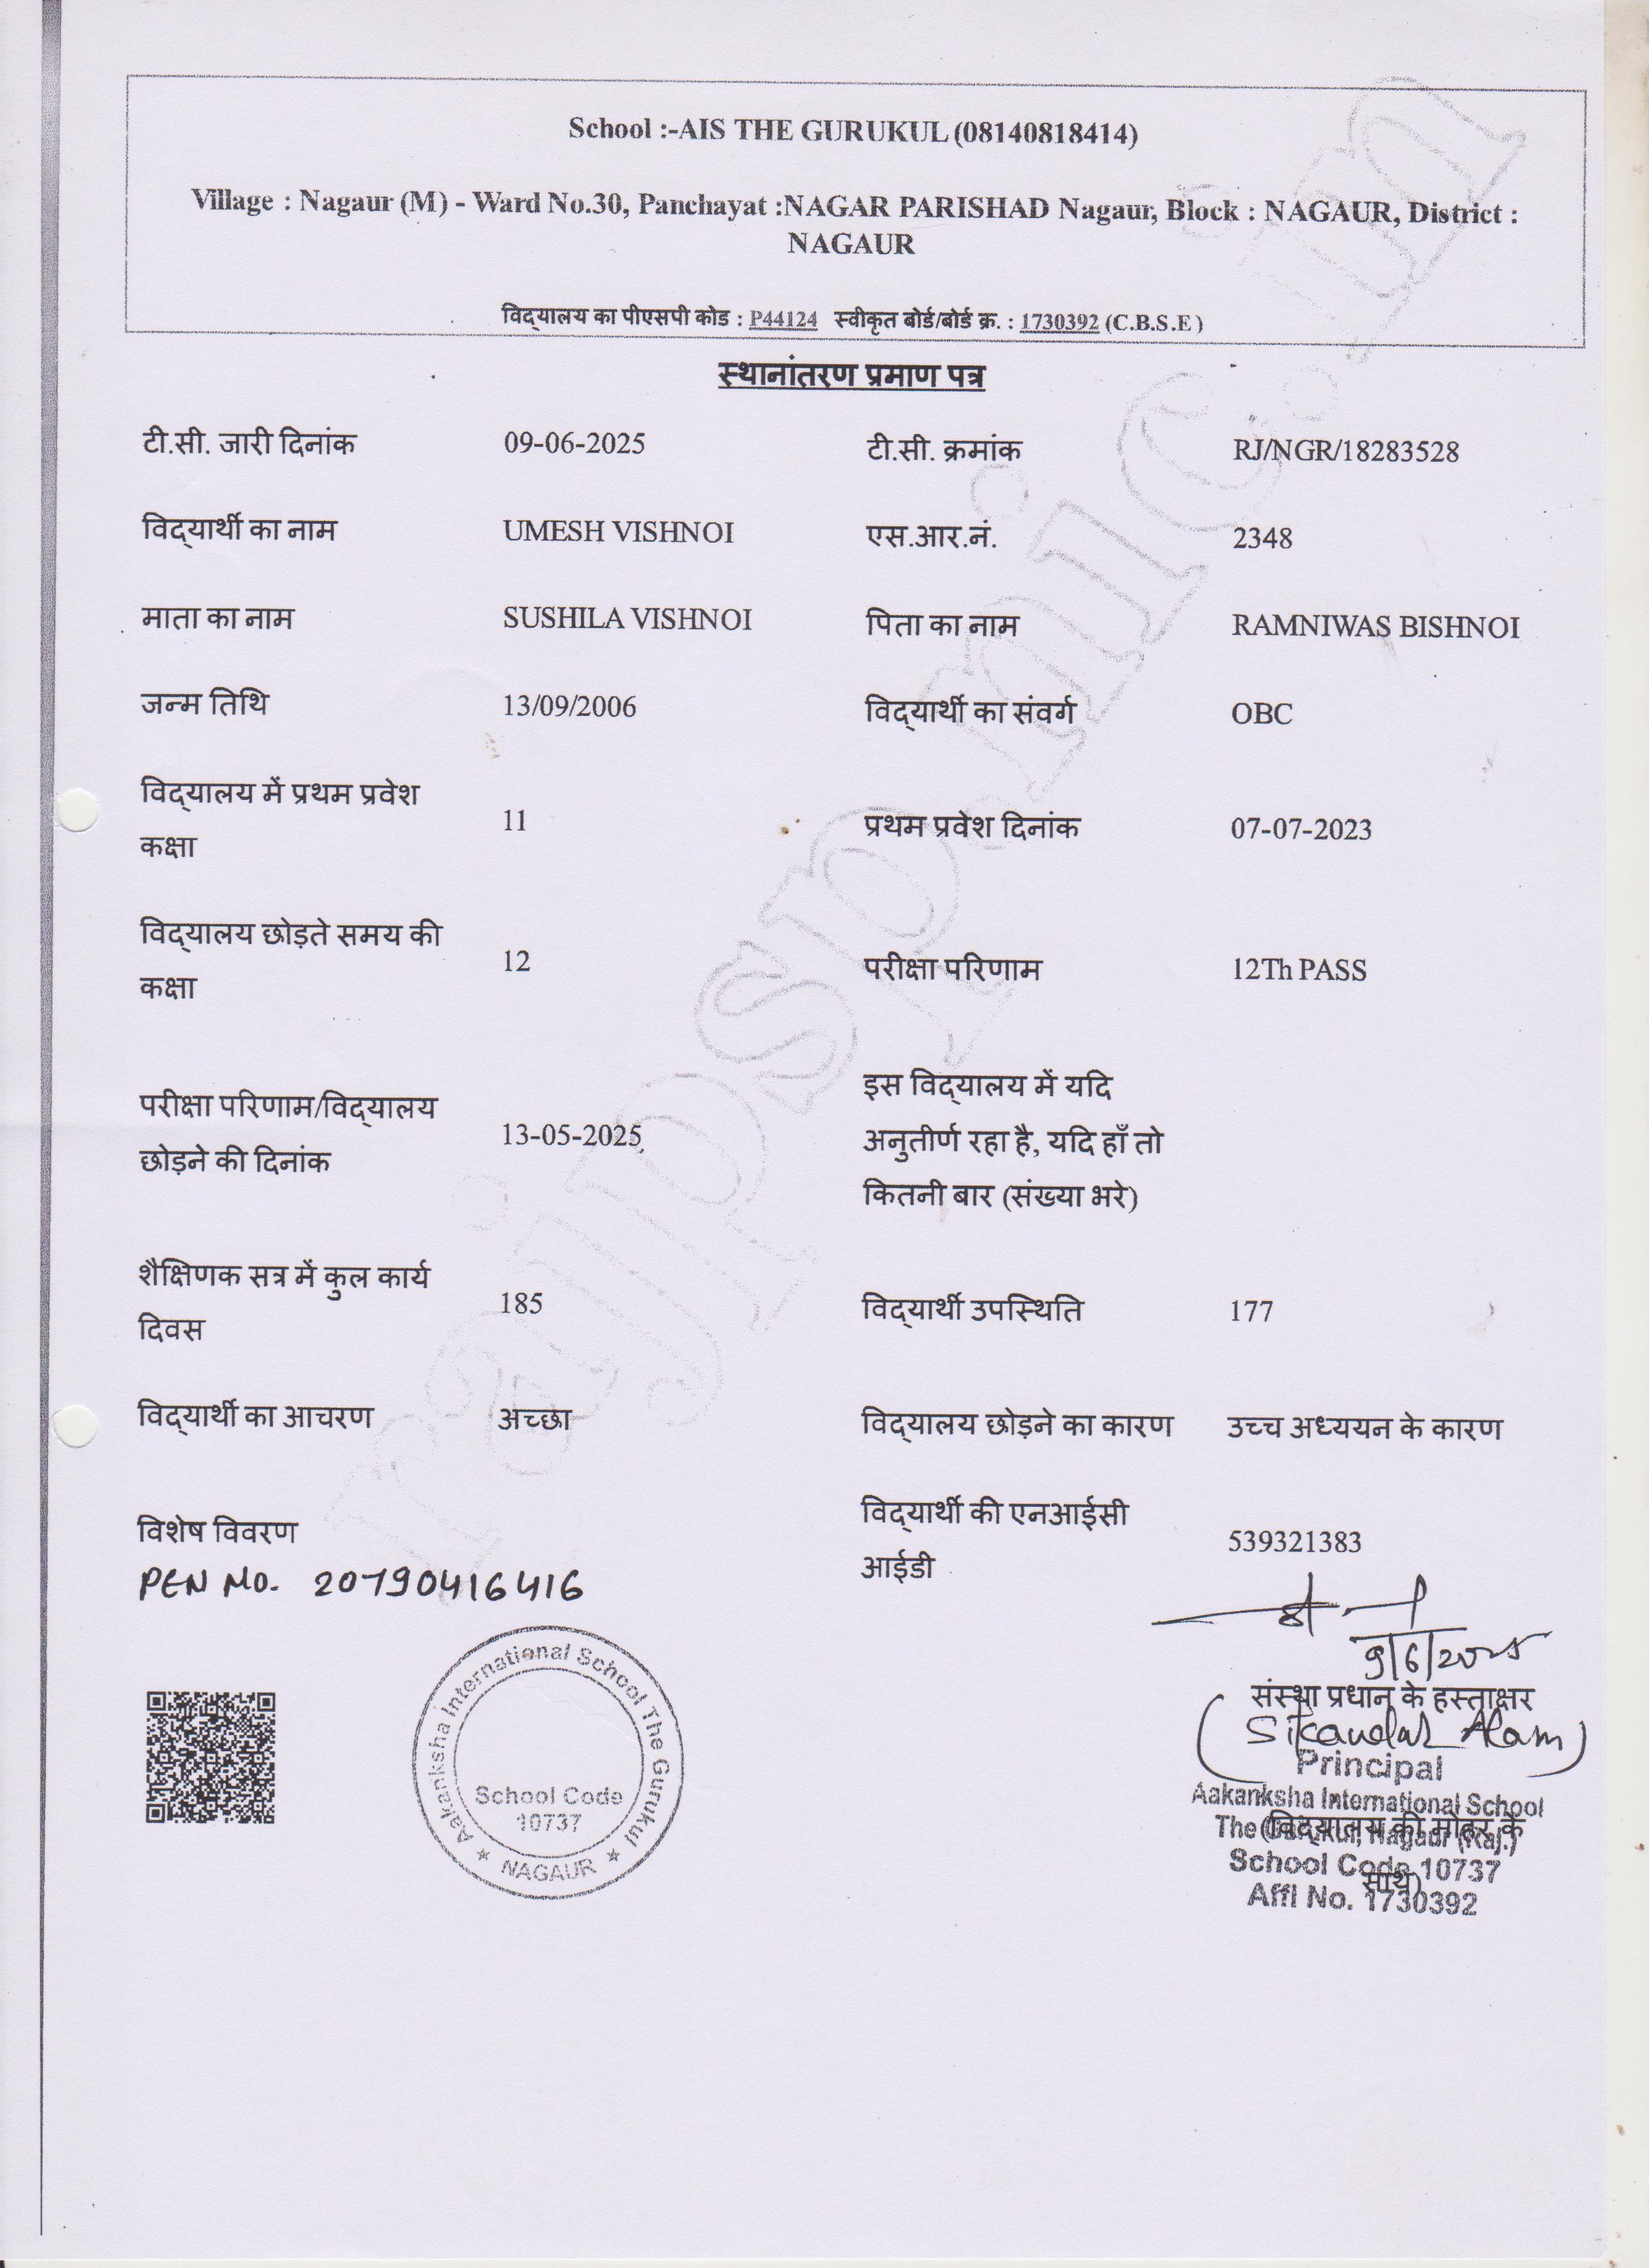 School :-AIS THE GURUKUL (08140818414)
Village : Nagaur (M) - Ward No.30, Panchayat :NAGAR PARISHAD Nagaur, Block : NAGAUR, District :
NAGAUR
विद्यालय का पीएसपी कोड : P44124 स्वीकृत बोर्ड/बोर्ड क्र. : 1730392 (C.B.S.E )
स्थानांतरण प्रमाण पत्र
टी.सी. जारी दिनांक 09-06-2025 टी.सी. क्रमांक RJ/NGR/18283528
विद्यार्थी का नाम UMESH VISHNOI एस.आर.नं. 2348
माता का नाम SUSHILA VISHNOI पिता का नाम RAMNIWAS BISHNOI
जन्म तिथि 13/09/2006 विद्यार्थी का संवर्ग OBC
विद्यालय में प्रथम प्रवेश
कक्षा
11
प्रथम प्रवेश दिनांक 07-07-2023
विद्यालय छोड़ते समय की
कक्षा
12
परीक्षा परिणाम 12Th PASS
परीक्षा परिणाम/विद्यालय
छोड़ने की दिनांक
13-05-2025
इस विद्यालय में यदि
अनुतीर्ण रहा है, यदि हाँ तो
कितनी बार (संख्या भरे)
शैक्षिणक सत्र में कुल कार्य
दिवस
185
विद्यार्थी उपस्थिति 177
विद्यार्थी का आचरण अच्छा विद्यालय छोड़ने का कारण उच्च अध्ययन के कारण
विशेष विवरण
PEN No. 20790416416
विद्यार्थी की एनआईसी
आईडी
539321383
9/6/2025
संस्था प्रधान के हस्ताक्षर
(Sikandar Alam)
Principal
Aakanksha International School
The Gurukul, Nagaur (Raj.)
(विद्यालय की मोहर के
School Code 10737
साथ)
Affi No. 1730392
Aakanksha International School The Gurukul
School Code
10737
★ NAGAUR ★
rajpsp.nic.in